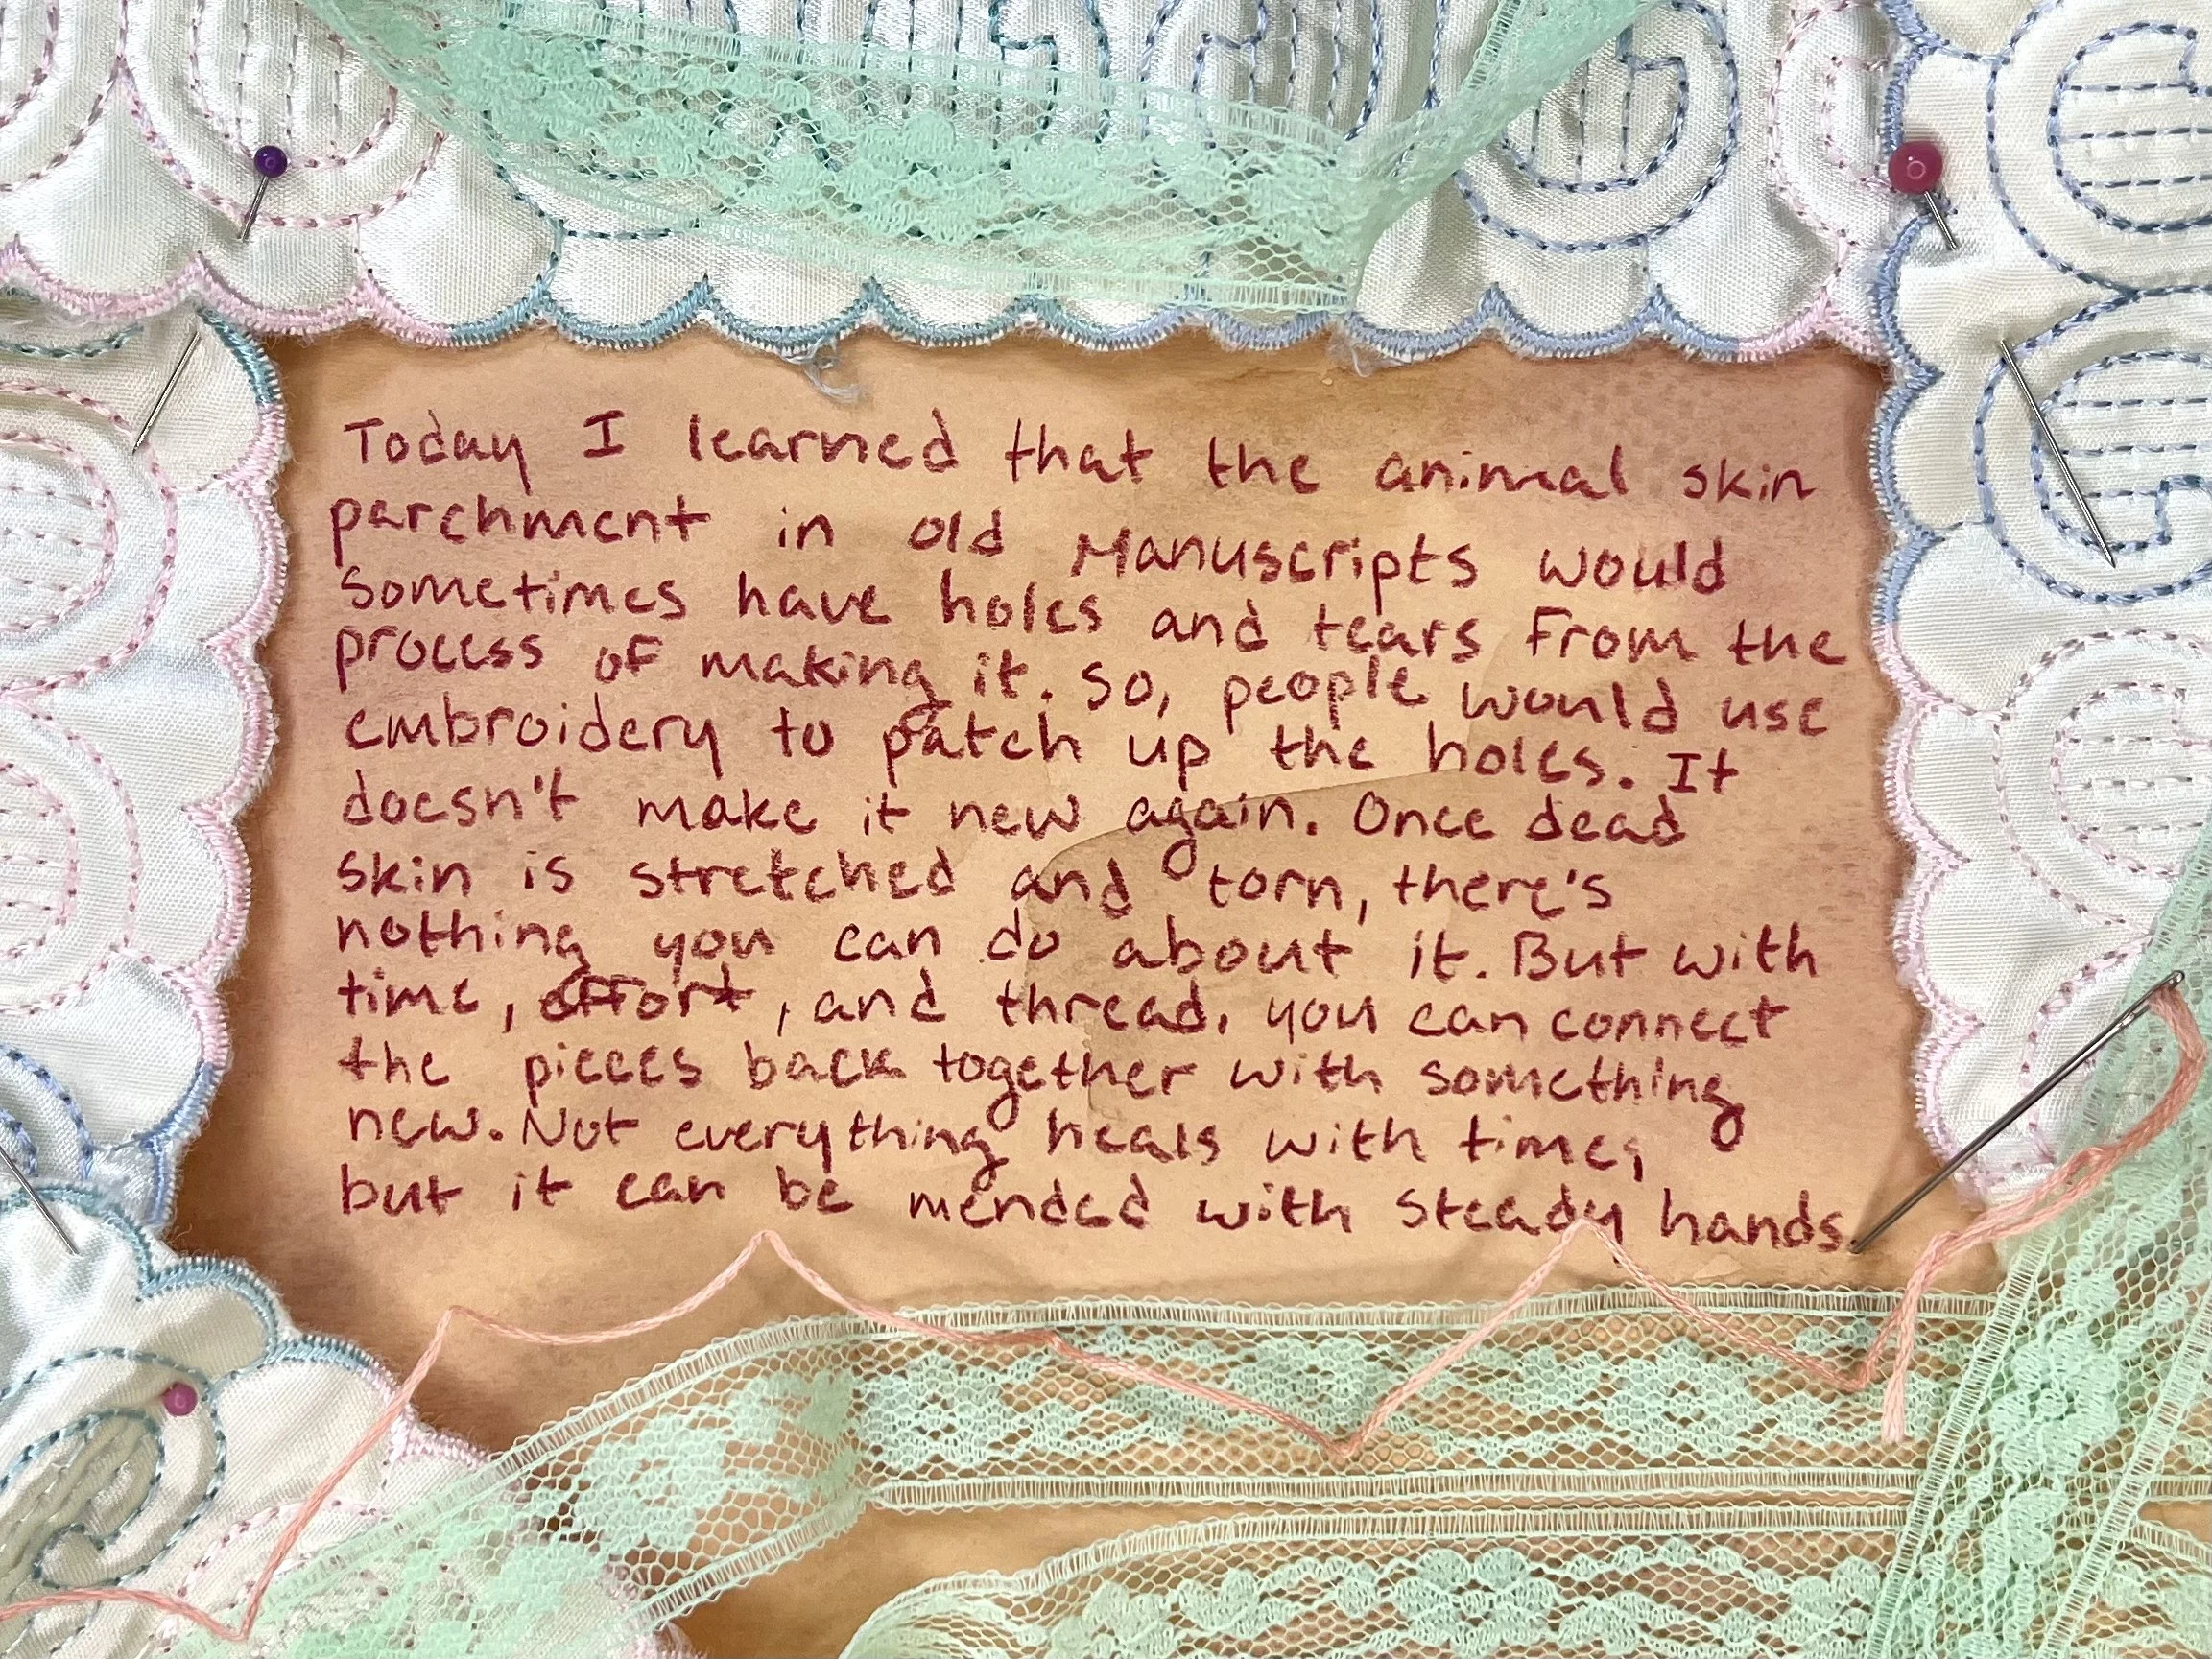 Today I learned that the animal skin
parchment in old Manuscripts would
sometimes have holes and tears from the
process of making it. So, people would use
embroidery to patch up the holes. It
doesn't make it new again. Once dead
skin is stretched and torn, there's
nothing you can do about it. But with
time, effort, and thread, you can connect
the pieces back together with something
new. Not everything heals with time,
but it can be mended with steady hands.